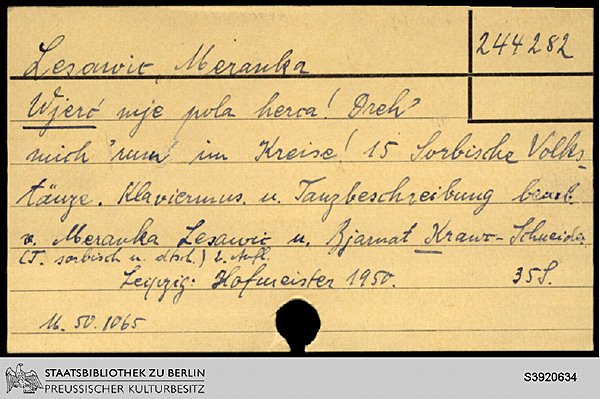 244282
Lesawic, Meranka
Wjerć mje pola herca! Dreh'
mich 'rum im Kreise! 15 Sorbische Volks-
tänze. Klaviermus. u. Tanzbeschreibung bearb.
v. Meranka Lesawic u. Bjarnat Krawc-Schneider
(T. sorbisch u. dtsch.) 2. Aufl.
Leipzig: Hofmeister 1950. 35 S.
M. 50. 1065
STAATSBIBLIOTHEK ZU BERLIN
PREUSSISCHER KULTURBESITZ
S3920634